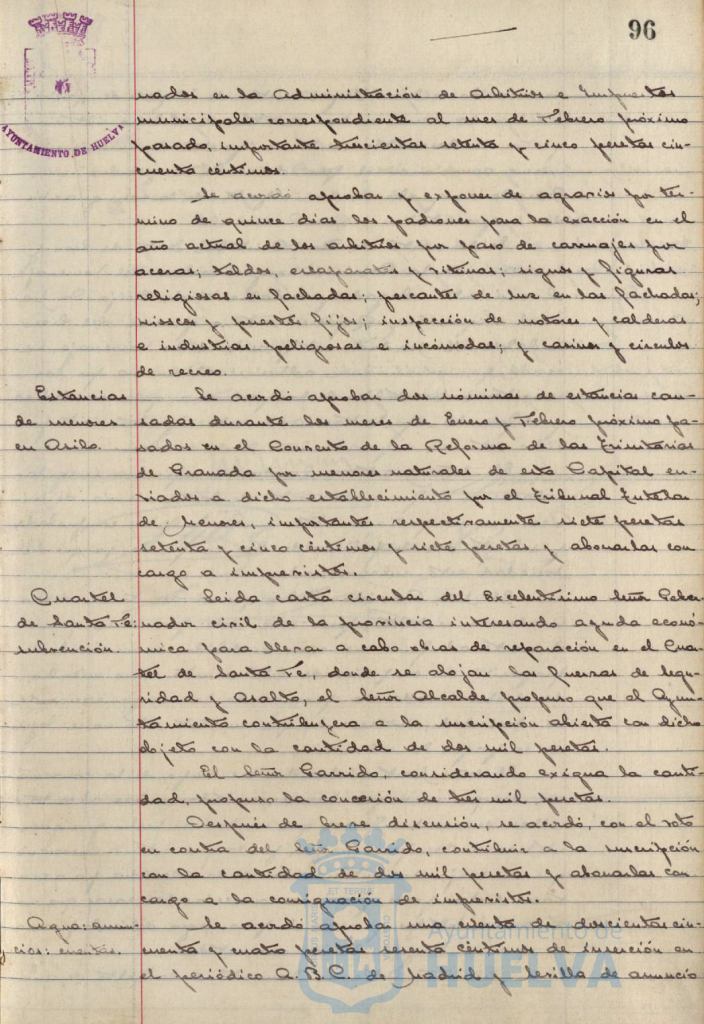 96
AYUNTAMIENTO DE HUELVA
nados en la Administración de Arbitrios e Impuestos
municipales correspondiente al mes de Febrero próximo
pasado, importante trescientas setenta y cinco pesetas cin-
cuenta céntimos.
Se acordó aprobar y exponer de agravios por tér-
mino de quince días los padrones para la exacción en el
año actual de los arbitrios por paso de carruajes por
aceras; toldos, escaparates y vitrinas; signos y figuras
religiosas en fachadas; pescantes de luz en las fachadas;
kioscos y puestos fijos; inspección de motores y calderas
e industrias peligrosas e incómodas; y casinos y círculos
de recreo.
Estancias
de menores
en Asilo.
Se acordó aprobar dos nóminas de estancias cau-
sadas durante los meses de Enero y Febrero próximo pa-
sados en el Convento de la Reforma de las Trinitarias
de Granada por menores naturales de esta Capital en-
viados a dicho establecimiento por el Tribunal Tutelar
de Menores, importantes respectivamente siete pesetas
setenta y cinco céntimos y siete pesetas y abonarlas con
cargo a imprevistos.
Cuartel
de Santa Fe:
subvención.
Leida carta circular del Excelentísimo Señor Gober-
nador civil de la provincia interesando ayuda econó-
mica para llevar a cabo obras de reparación en el Cuar-
tel de Santa Fe, donde se alojan las fuerzas de Segu-
ridad y Asalto, el Señor Alcalde propuso que el Ayun-
tamiento contribuyera a la suscripción abierta con dicho
objeto con la cantidad de dos mil pesetas.
El Señor Garrido, considerando exigua la canti-
dad, propuso la concesión de tres mil pesetas.
Después de breve discusión, se acordó, con el voto
en contra del Señor Garrido, contribuir a la suscripción
con la cantidad de dos mil pesetas y abonarlas con
cargo a la consignación de imprevistos.
Agua: anun-
cios: cuentas.
Se acordó aprobar una cuenta de doscientas cin-
cuenta y cuatro pesetas sesenta céntimos de inserción en
el periódico A.B.C. de Madrid y Sevilla de anuncio
Ayuntamiento de
HUELVA